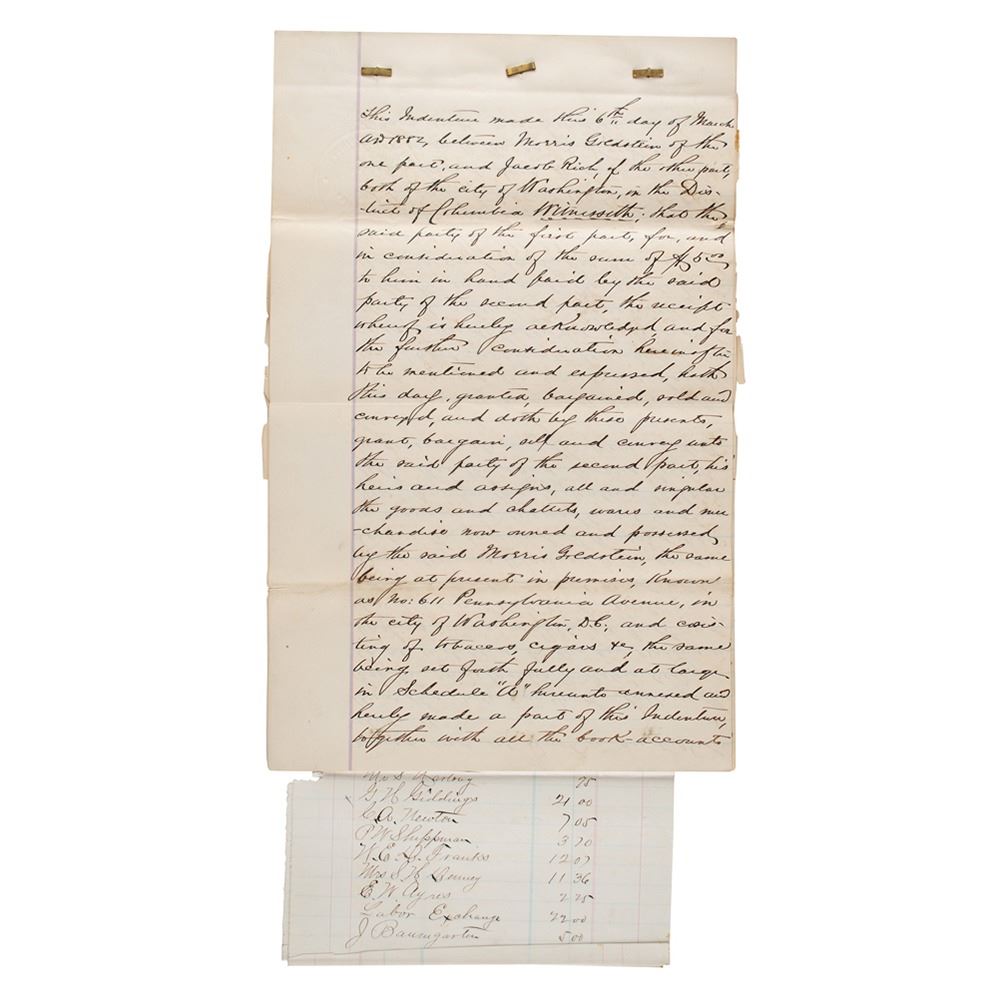 This Indenture made this 6th day of March
AD 1882, between Morris Goldstein of the
one part, and Jacob Rich, of the other part,
both of the city of Washington, in the Dis-
-trict of Columbia Witnesseth; that the
said party of the first part, for, and
in consideration of the sum of $5 00
to him in hand paid by the said
party of the second part, the receipt
whereof is hereby acknowledged, and for
the further consideration hereinafter
to be mentioned and expressed, hath
this day, granted, bargained, sold and
conveyed, and doth by these presents,
grant, bargain, sell and convey unto
the said party of the second part, his
heirs and assigns, all and singular
the goods and chattels, wares and mer
-chandise now owned and possessed
by the said Morris Goldstein, the same
being at present in premises, known
as No: 611 Pennsylvania Avenue, in
the city of Washington, D.C, and consis-
ting of tobaccos, cigars &c, the same
being set forth fully and at large
in Schedule "A" hereunto annexed and
hereby made a part of this Indenture,
together with all the book-accounts
Mrs S 75
G H Giddings 21 00
C A. Newton 7 05
P W Shippman 3 70
W. E. Franks 12 07
Mrs S H 11 36
E W Ayres 2 25
Labor Exchange 22 00
J Baumgarten 5 00